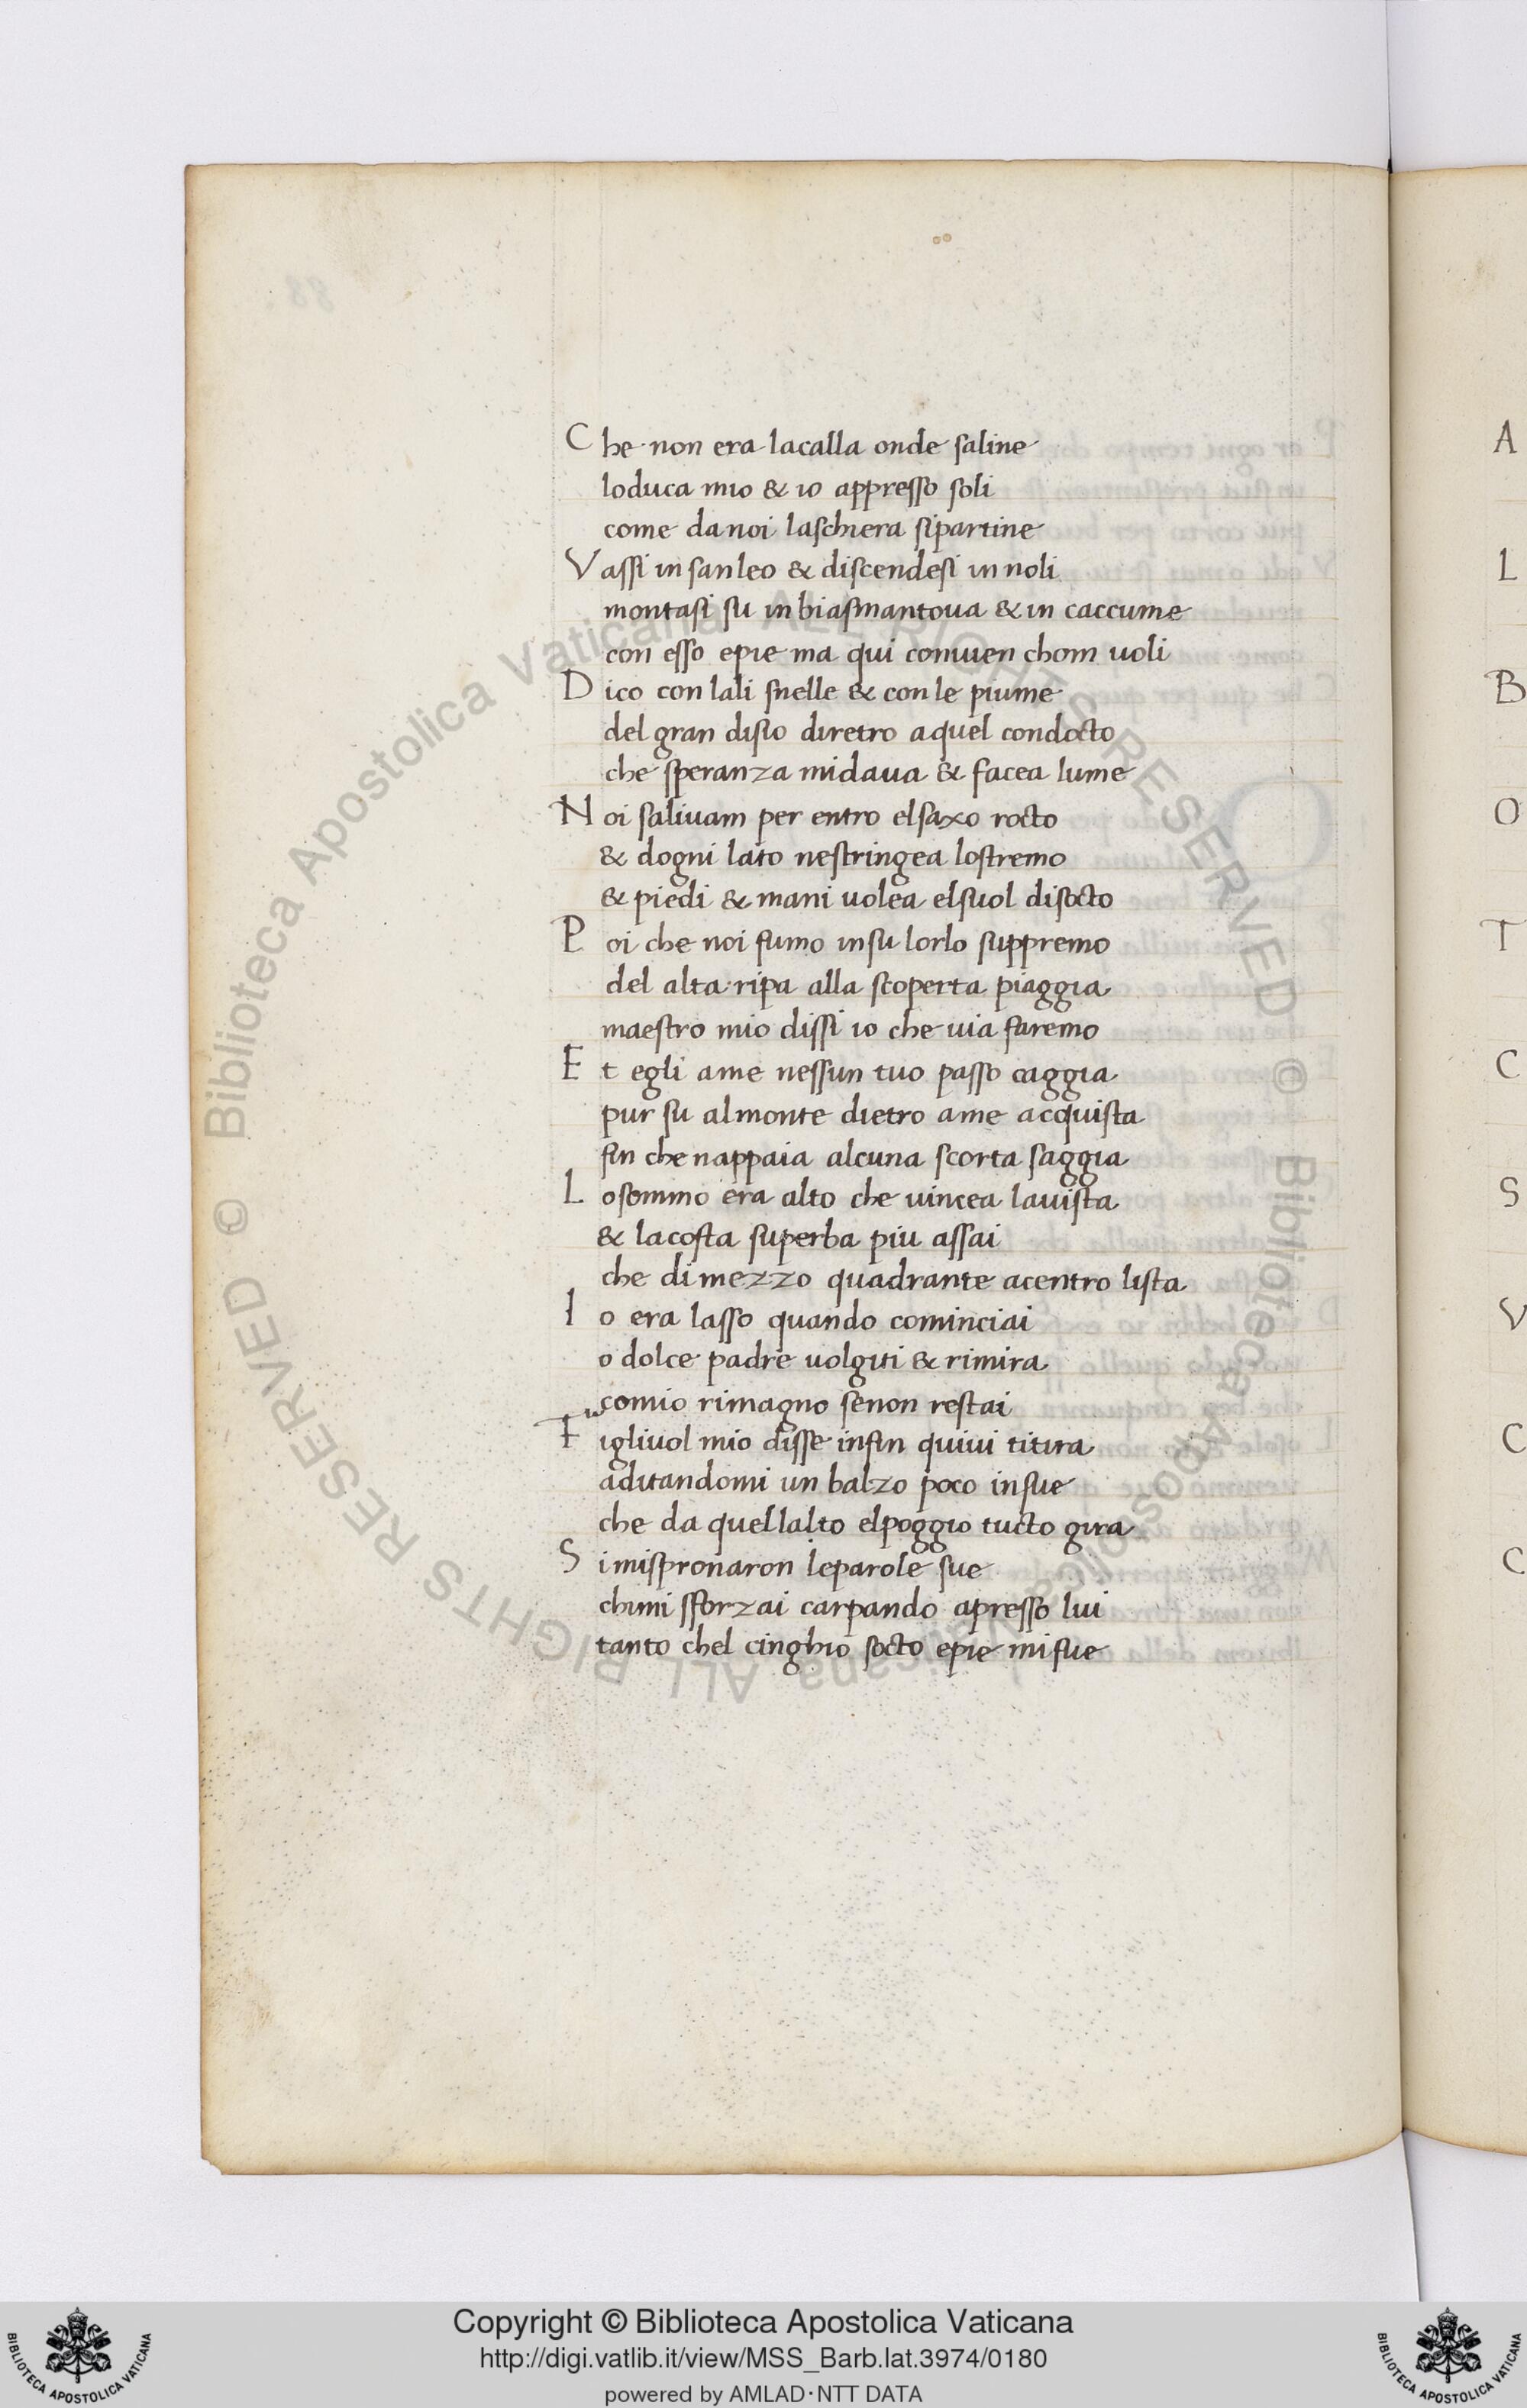 Che non era lacalla onde saline
loduca mio & io appresso soli
come danoi laschiera sipartine
Vassi in sanleo & discendesi in noli
montasi su inbiasmantoua & in caccume
con esso epie ma qui conuien chom uoli
Dico con lali snelle & con le piume
del gran disio diretro aquel condocto
che speranza midaua & facea lume
Noi saliuam per entro elsaxo rocto
& dogni lato nestringea lostremo
& piedi & mani uolea elsuol disocto
Poi che noi fumo insu lorlo suppremo
del alta ripa alla scoperta piaggia
maestro mio dissi io che uia faremo
Et egli ame nessun tuo passo caggia
pur su almonte dietro ame acquista
fin che nappaia alcuna scorta saggia
Losommo era alto che uincea lauista
& lacosta superba piu assai
che di mezzo quadrante acentro lista
Io era lasso quando cominciai
o dolce padre uolgiti & rimira
comio rimagno senon restai
Figliuol mio disse infin quiui titira
aditandomi un balzo poco insue
che da quellalto elpoggio tucto gira
Si mispronaron leparole sue
chimi sforzai carpando apresso lui
tanto chel cinghio socto epie mi fue
A
L
B
O
T
C
S
V
C
C
© Biblioteca Apostolica Vaticana ALL RIGHTS RESERVED
© Biblioteca Apostolica Vaticana ALL RIGHTS RESERVED
Copyright © Biblioteca Apostolica Vaticana
http://digi.vatlib.it/view/MSS_Barb.lat.3974/0180
powered by AMLAD·NTT DATA
BIBLIOTECA APOSTOLICA VATICANA
BIBLIOTECA APOSTOLICA VATICANA